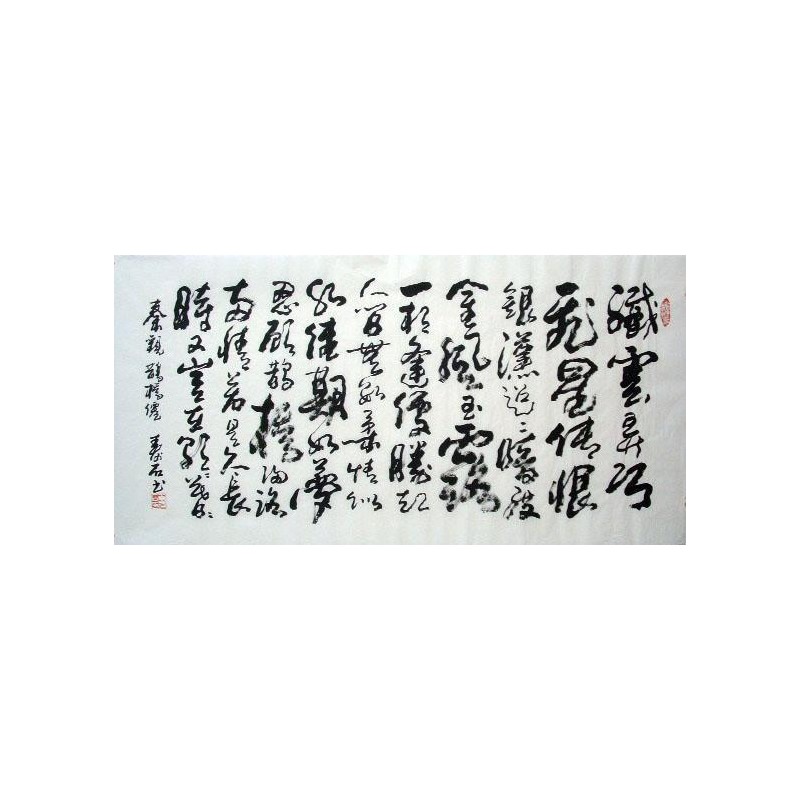 纖雲弄巧
飛星傳恨
銀漢迢〻暗度
金風玉露
一相逢便勝却
人間無數柔情似
水佳期如夢
忍顧鵲橋歸路
兩情若是久長
時又豈在朝〻暮〻
秦觀鵲橋僊 石書